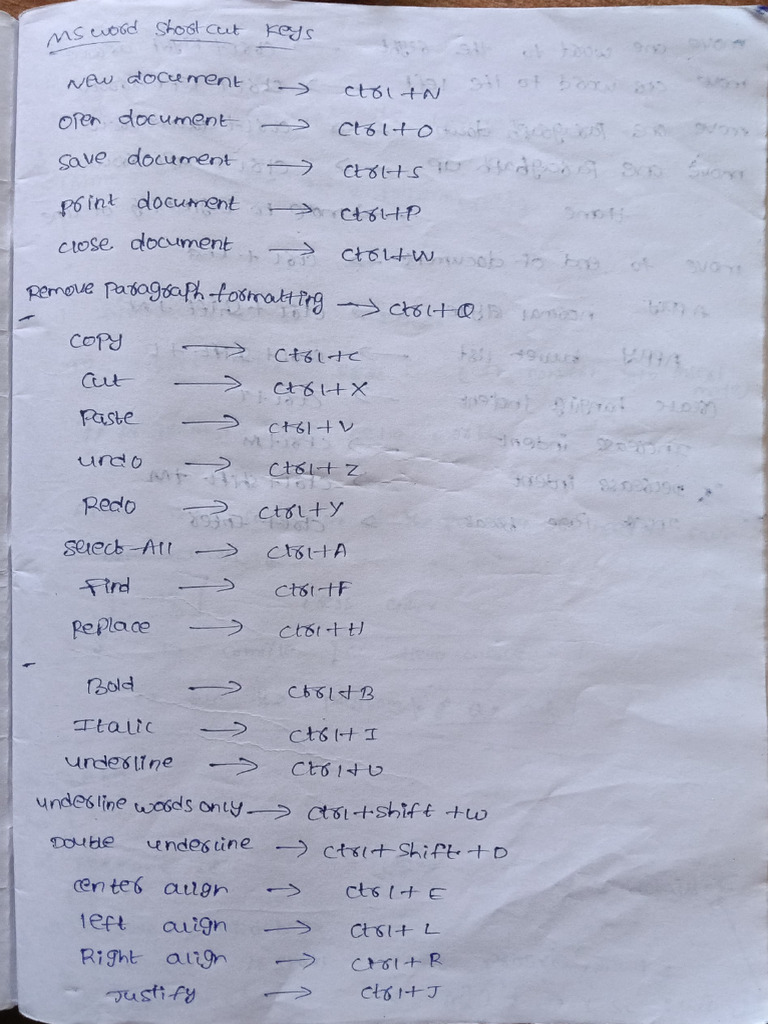 MS word Shortcut Keys
New document → Ctrl+N
open document → Ctrl+O
Save document → Ctrl+S
print document → Ctrl+P
close document → Ctrl+W
Remove Paragraph formatting → Ctrl+Q
copy → Ctrl+C
Cut → Ctrl+X
Paste → Ctrl+V
undo → Ctrl+Z
Redo → Ctrl+Y
Select-All → Ctrl+A
find → Ctrl+F
Replace → Ctrl+H
Bold → Ctrl+B
Italic → Ctrl+I
underline → Ctrl+U
underline words only → Ctrl+Shift+W
Double underline → Ctrl+Shift+D
center align → Ctrl+E
left align → Ctrl+L
Right align → Ctrl+R
Justify → Ctrl+J